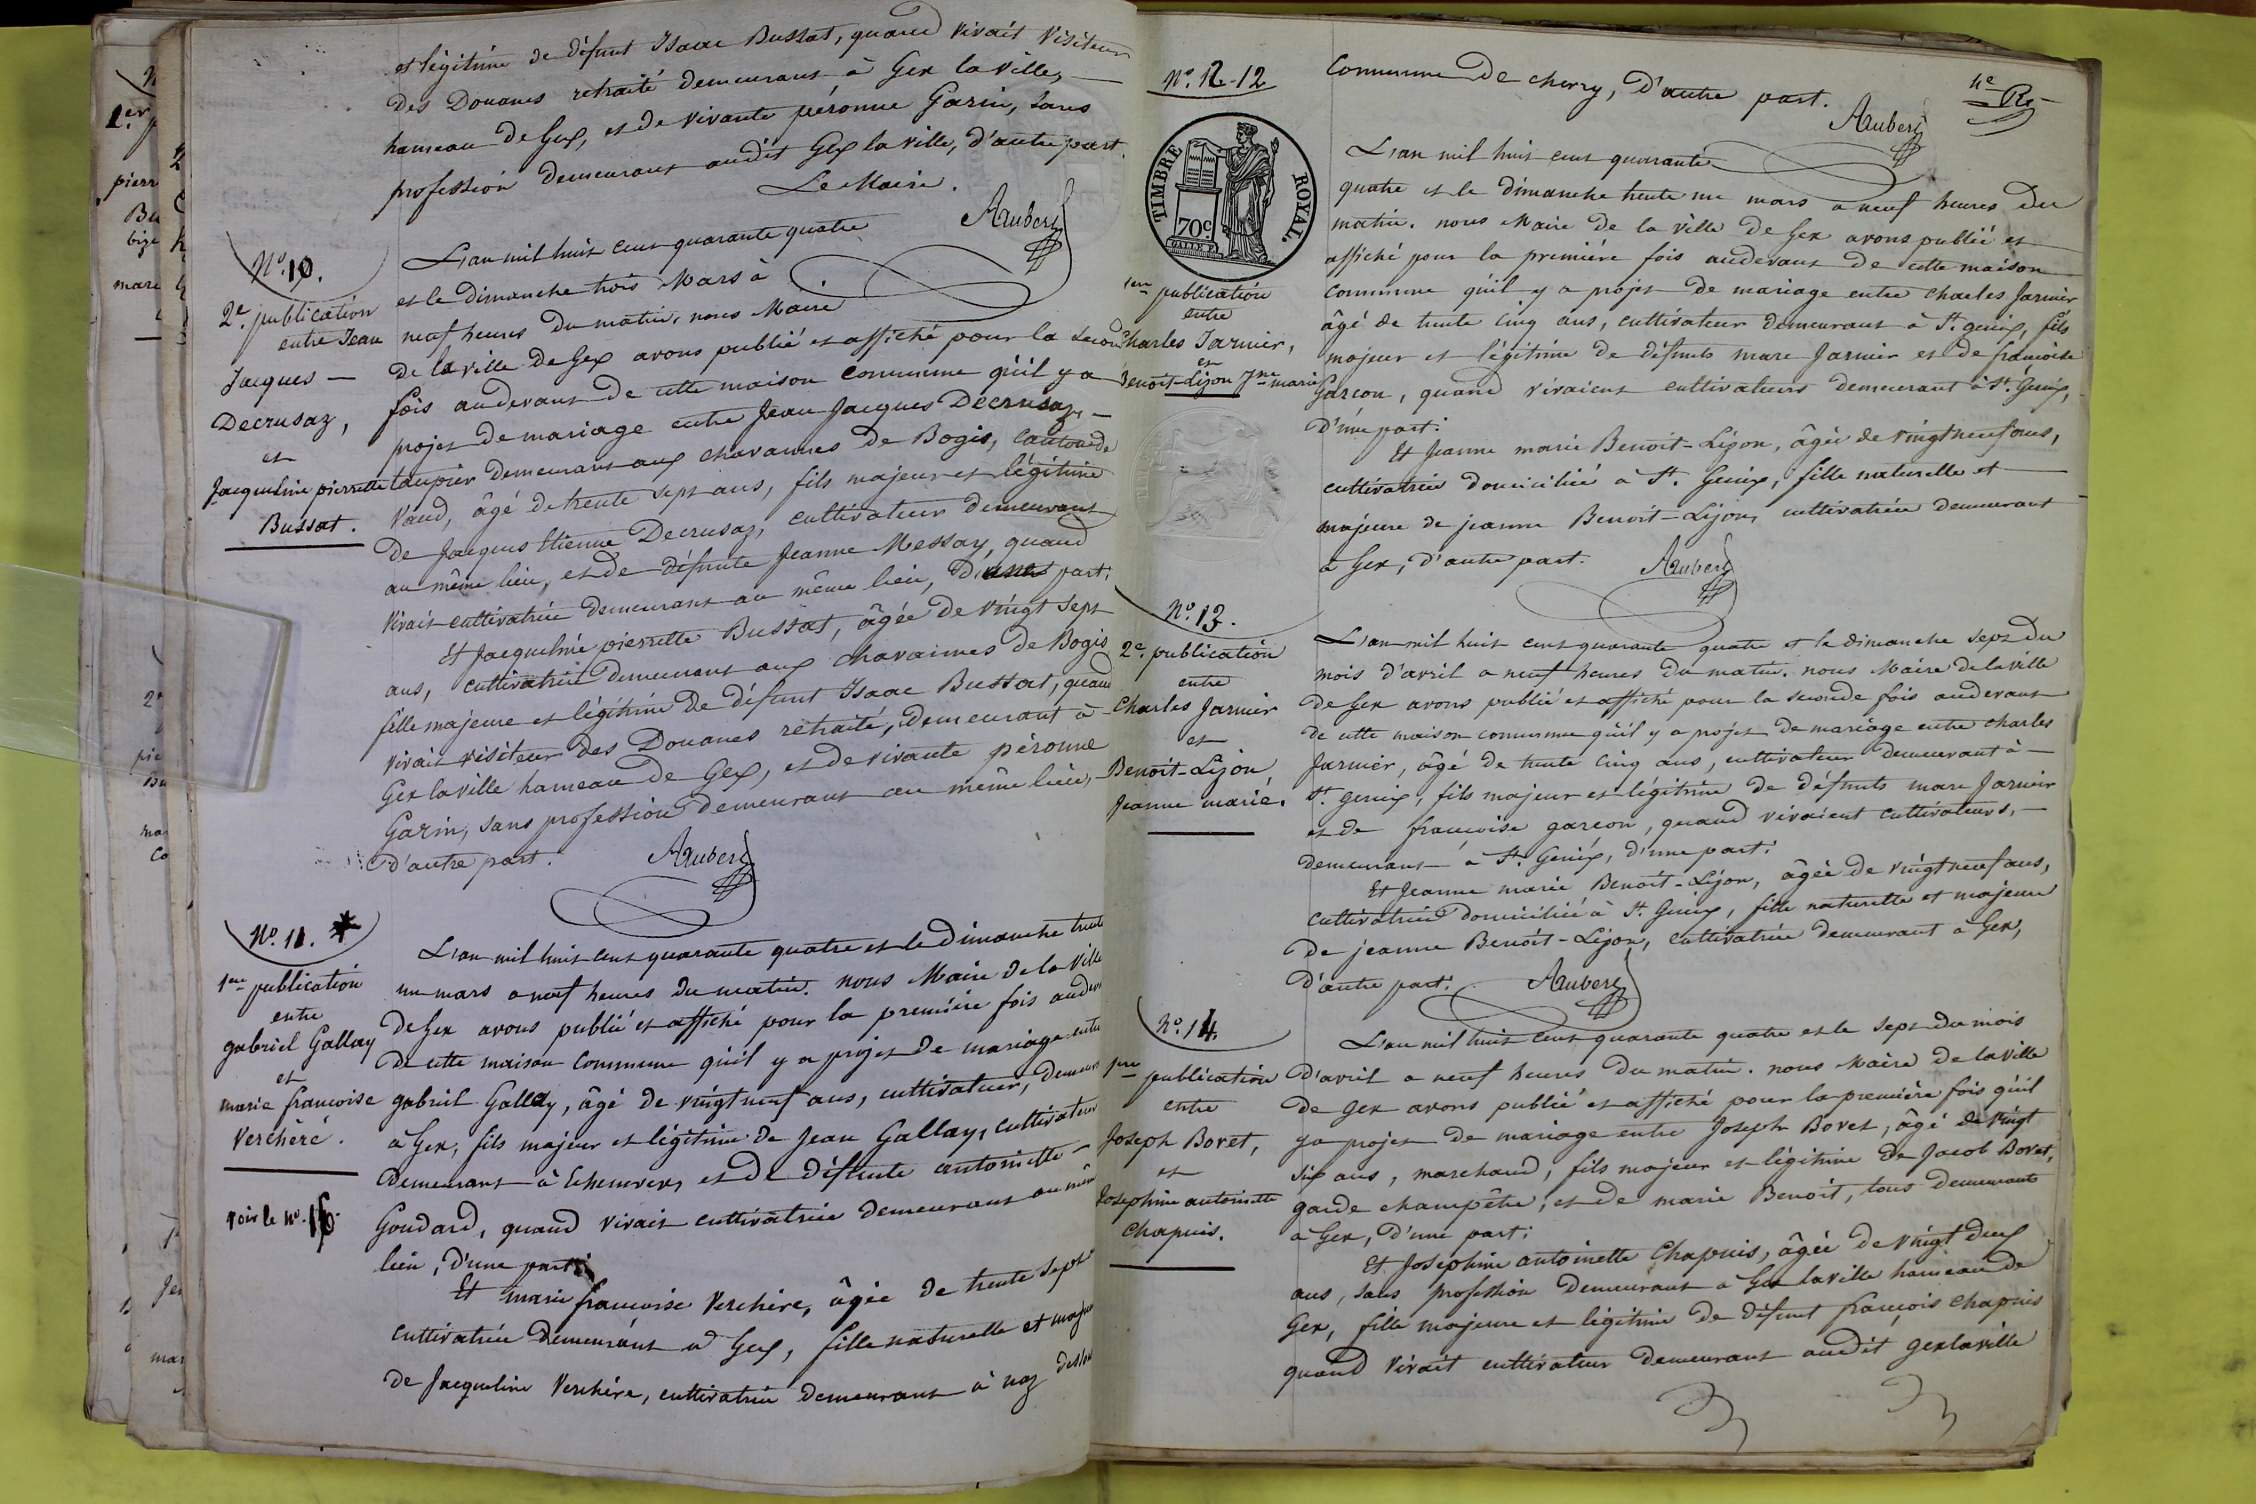 et légitime de défunt Isaac Bussat, quand vivait Visiteur
des Douanes retraité demeurant à Gex la ville,
hameau de Gex, et de vivante péronne Garin, sans
profession demeurant audit Gex la ville, d'autre part.
Le Maire.
Aubert
N°. 10.
2e. publication
entre Jean
Jacques —
Decrusaz,
et
Jacqueline pierrette
Bussat.
L'an mil huit cent quarante quatre
et le dimanche trois Mars à
neuf heures du matin, nous Maire
de la ville de Gex avons publié et affiché pour la second
fois audevant de cette maison commune qu'il y a
projet de mariage entre Jean Jacques Decrusaz, —
taupier demeurant aux chavannes de Bogis, canton de
Vaud, âgé de trente sept ans, fils majeur et légitime
de Jacques Etienne Decrusaz, cultivateur demeurant
au même lieu, et de défunte Jeanne Messay, quand
vivait cultivatrice demeurant au même lieu, d'une part.
Et Jacqueline pierrette Bussat, âgée de vingt sept
ans, cultivatrice demeurant aux chavannes de Bogis
fille majeure et légitime de défunt Isaac Bussat, quand
vivait visiteur des Douanes retraité, demeurant à
Gex la ville hameau de Gex, et de vivante péronne
Garin, sans profession demeurant au même lieu,
d'autre part.
Aubert
N°. 11. *
1ere publication
entre
gabriel Gallay
et
marie francoise
Verchère.
voir le N°. 16.
L'an mil huit cent quarante quatre et le Dimanche trente
un mars a neuf heures du matin. nous Maire de la Ville
de Gex avons publié et affiché pour la première fois audev
de cette maison commune qu'il y a projet de mariage entre
gabriel Gallay, âgé de vingt neuf ans, cultivateur, demeura
à Gex, fils majeur et légitime de Jean Gallay, cultivateur
demeurant à Echenevex, et de défunte antoinette —
Goudard, quand vivait cultivatrice demeurant au mêm
lieu, d'une part.
Et marie francoise Verchère, âgée de trente sept
cultivatrice demeurant à Gex, fille naturelle et maj
de Jacqueline Verchère, cultivatrice demeurant à naz dessus
N°. 12-12
commune de chevry, d'autre part.
4e
Aubert
TIMBRE ROYAL.
70c.
1ere publication
entre
Charles Jarnier,
et
Benoit-Lijon Jne marie
L'an mil huit cent quarante
quatre et le dimanche trente un mars a neuf heures du
matin. nous Maire de la ville de Gex avons publié et
affiché pour la première fois audevant de cette maison
commune qu'il y a projet de mariage entre charles Jarnier
âgé de trente cinq ans, cultivateur demeurant à St. genix, fils
majeur et légitime de défunts marc Jarnier et de francoise
Garcon, quand vivaient cultivateurs demeurant à St. Genix,
d'une part:
Et Jeanne marie Benoit-Lijon, âgée de vingt neuf ans,
cultivatrice domiciliée à St. Genix, fille naturelle et
majeure de jeanne Benoit-Lijon, cultivatrice demeurant
à Gex, d'autre part.
Aubert
N°. 13.
2e. publication
entre
Charles Jarnier
et
Benoit-Lijon,
Jeanne marie.
L'an mil huit cent quarante quatre et le dimanche sept du
mois d'avril a neuf heures du matin. nous Maire de la ville
de Gex avons publié et affiché pour la seconde fois audevant
de cette maison commune qu'il y a projet de mariage entre charles
Jarnier, âgé de trente cinq ans, cultivateur demeurant à —
St. genix, fils majeur et légitime de défunts marc Jarnier
et de francoise garcon, quand vivaient cultivateurs, —
demeurant à St. Genix, d'une part:
Et Jeanne marie Benoit-Lijon, âgée de vingt neuf ans,
cultivatrice domiciliée à St. Genix, fille naturelle et majeure
de jeanne Benoit-Lijon, cultivatrice demeurant à Gex,
d'autre part.
Aubert
N°. 14.
1ere publication
entre
Joseph Bovet,
et
Josephine antoinette
Chapuis.
L'an mil huit cent quarante quatre et le sept du mois
d'avril a neuf heures du matin. nous Maire de la ville
de Gex avons publié et affiché pour la première fois qu'il
y a projet de mariage entre Joseph Bovet, âgé de vingt
six ans, marchand, fils majeur et légitime de Jacob Bovet,
garde champêtre, et de marie Benoit, tous demeurants
à Gex, d'une part:
Et Josephine antoinette Chapuis, âgée de vingt deux
ans, sans profession demeurant à Gex la ville hameau de
Gex, fille majeure et légitime de défunt françois chapuis
quand vivait cultivateur demeurant audit gex la ville